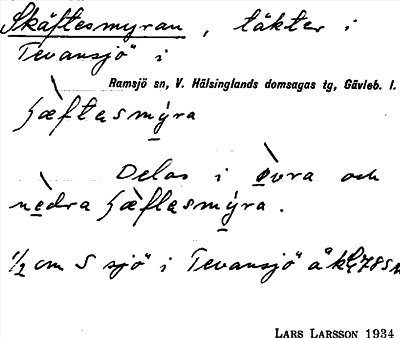 Skäftesmyran, täkter i
Tevansjö i
Ramsjö sn, V. Hälsinglands domsagas tg, Gävleb. l.
ʃæ̀ftasmýra
Delas i øvra och
nedra ʃæ̀ftasmýra.
1/2 cm S sjö i Tevansjö å
LARS LARSSON 1934